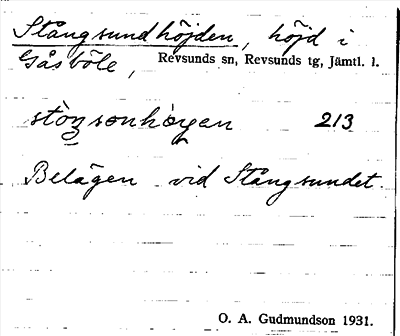 Stångsundhöjden, höjd i
Gåsböle, Revsunds sn, Revsunds tg, Jämtl. l.
213
Belägen vid Stångsundet.
O. A. Gudmundson 1931.